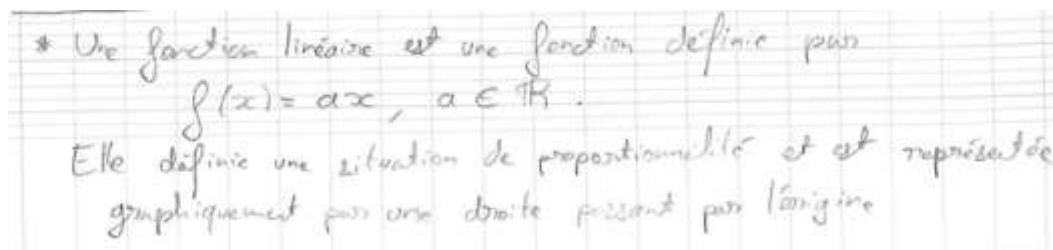 * Une fonction linéaire est une fonction définie par
f(x) = ax, a ∈ ℝ.
Elle définie une situation de proportionnilité et est représentée
graphiquement par une droite passant par l'origine